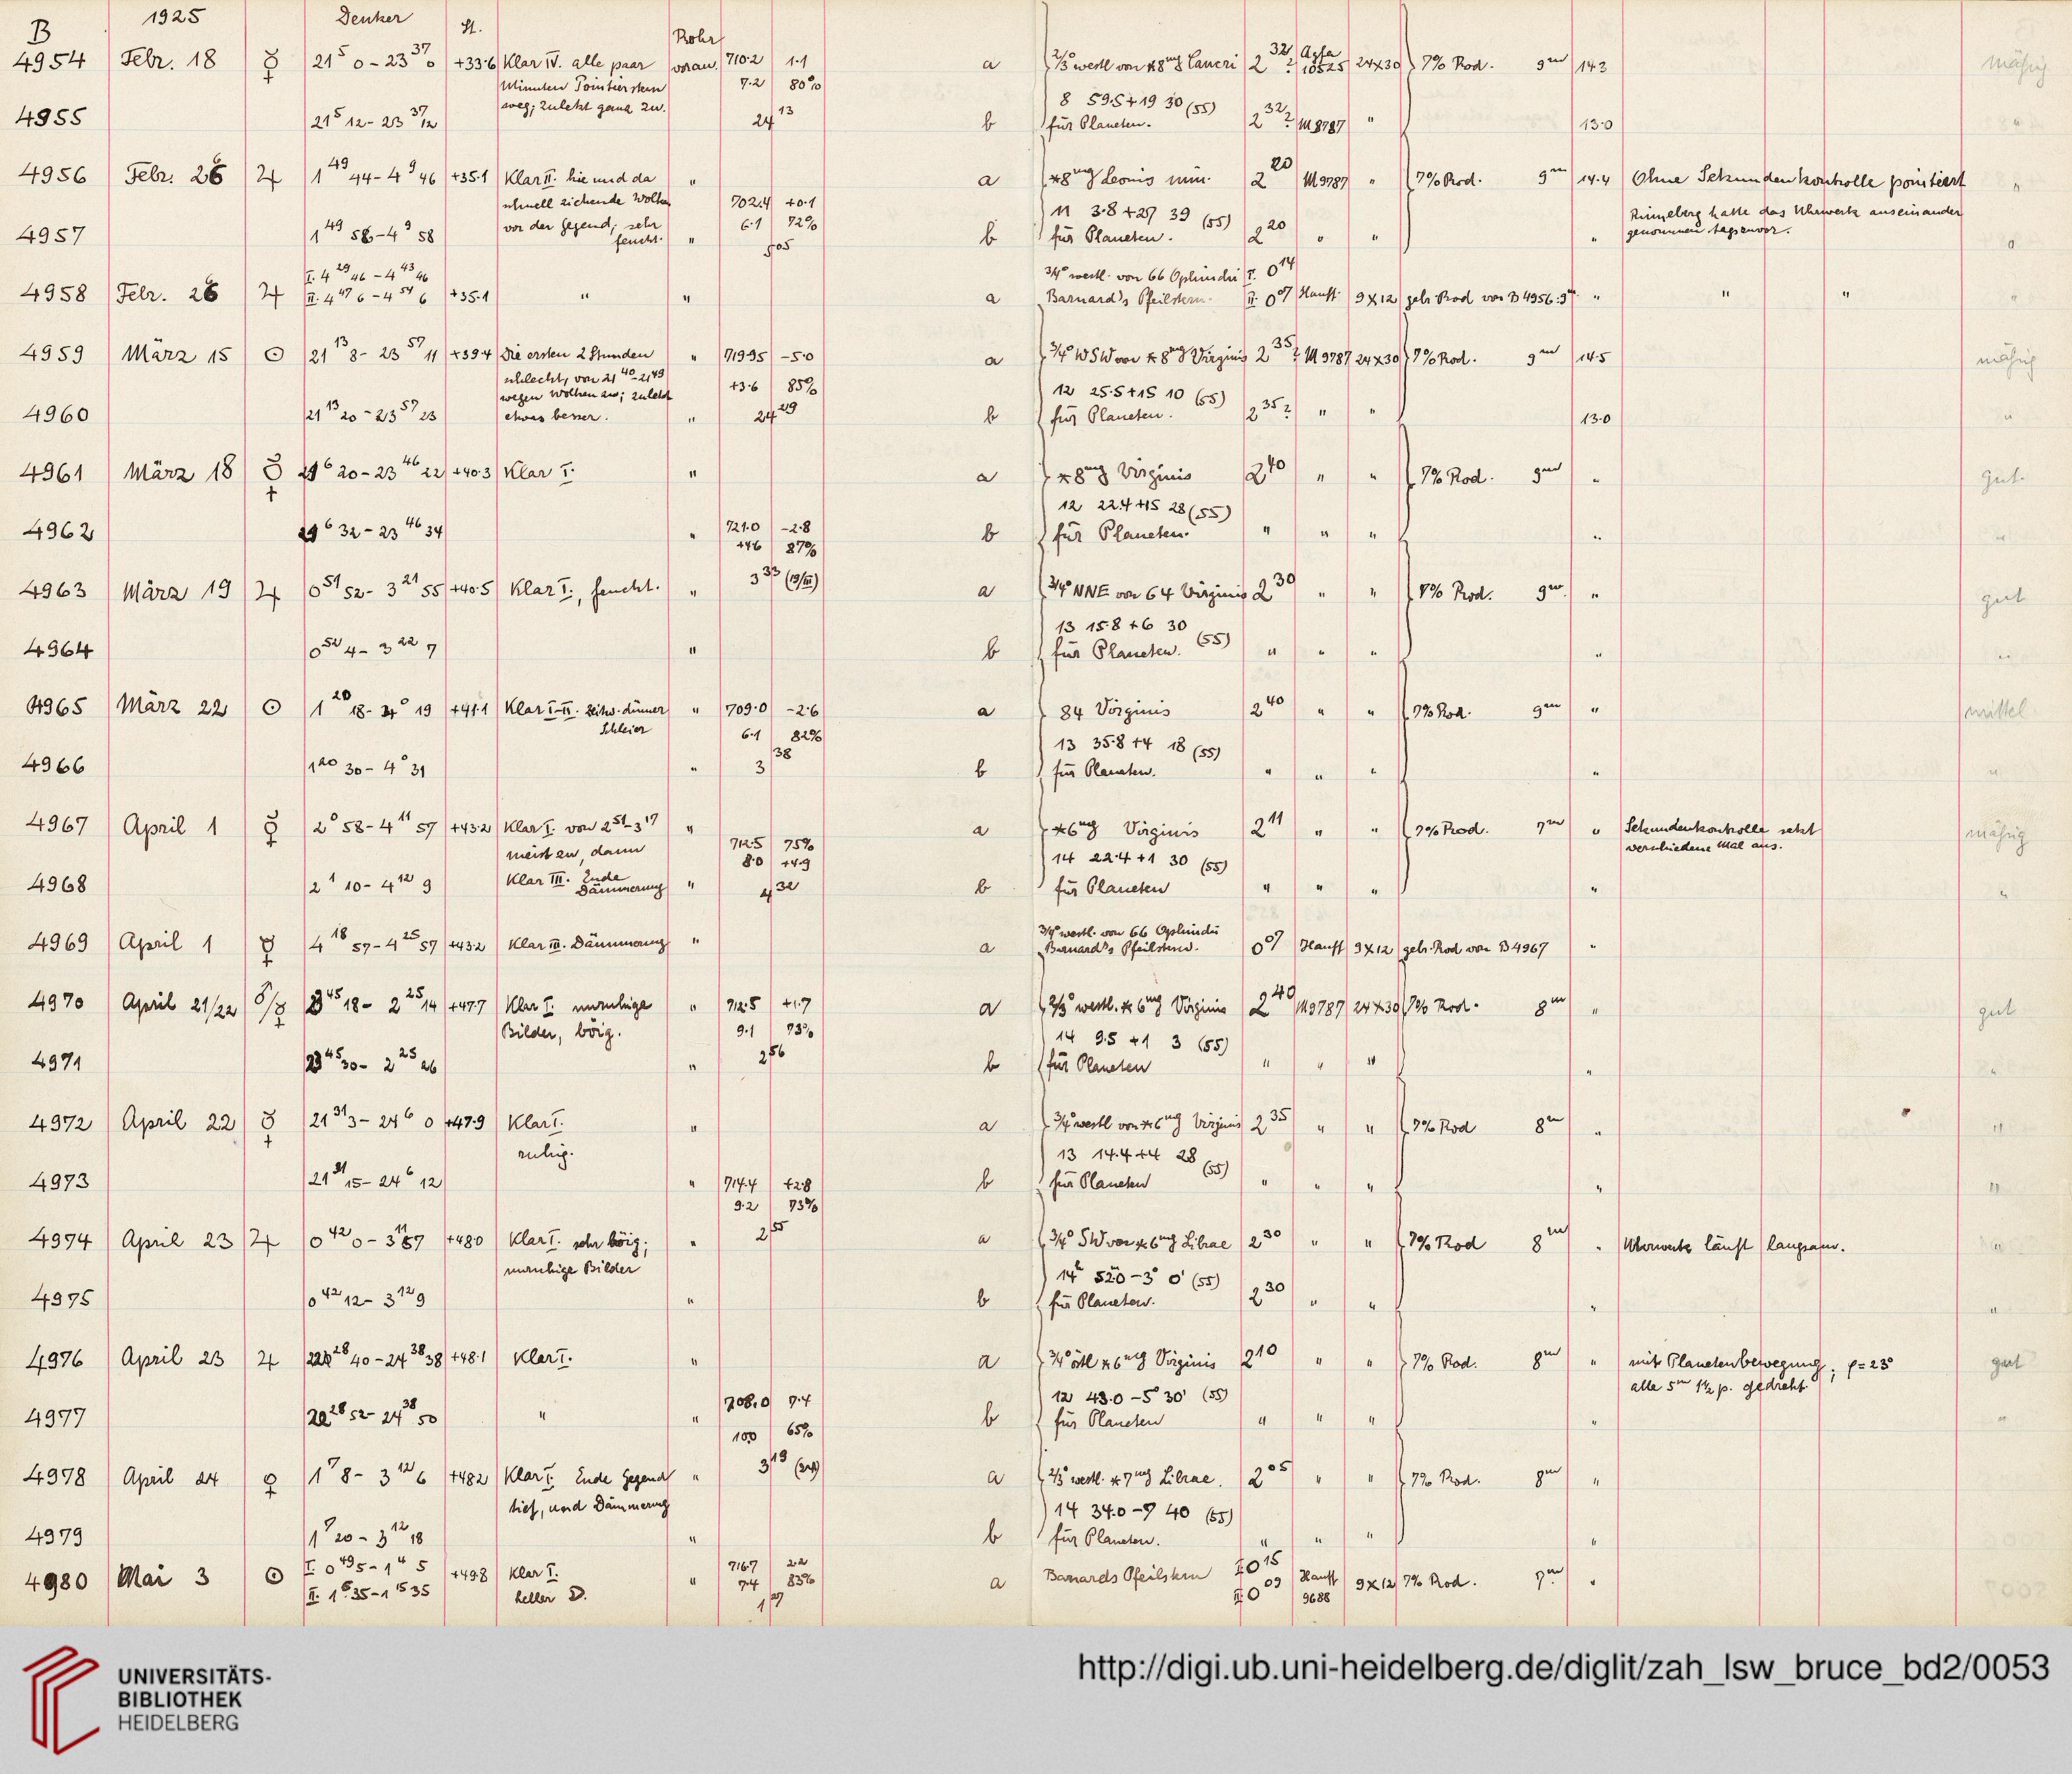 B 1925 Denker St. Rohr
4954 Febr. 18 ☿ 21 5 0 – 23 37 0 +33.6 Klar IV. alle paar voran. 710.2 1.1 a 2/3° westl von *8ng Cancri 2 32 ? Agfa 10525 24×30 7% Rod. 9m 14.3 mäßig
Minuten Pointierstern 7.2 80%
weg; zuletzt ganz zu.
8 59.5 +19 30 (55)
4955 21 5 12 – 23 37 12 24 13 b für Planeten. 2 32 ? M 8787 " 13.0 "
4956 Febr. 26 ♃ 1 49 44 – 4 9 46 +35.1 Klar II. hie und da " a *8ng Leonis min. 2 20 M 9787 " 7% Rod. 9m 14.4 Ohne Sekundenkontrolle pointiert "
schnell ziehende Wolken 702.4 +0.1
vor der Gegend; sehr feucht. 6.1 72%
11 3.8 +27 39 (55)
hatte das Uhrwerk auseinander
genommen tagszuvor.
4957 1 49 58 – 4 9 58 " 5 05 b für Planeten. 2 20 " " "
4958 Febr. 26 ♃ I. 4 29 46 – 4 43 46 +35.1 " " a 3/4° westl. von 66 Ophiuchi I. 0 14
II. 4 47 6 – 4 54 6 Barnard's Pfeilstern. II. 0 07 Hauff 9×12 gebr. Rod von B 4956 : 9m " " " "
4959 März 15 ⊙ 21 13 8 – 23 57 11 +39.4 Die ersten 2 Stunden " 719.95 –5.0 a 3/4° WSW von *8ng Virginis 2 35 ? M 9787 24×30 7% Rod. 9m 14.5 mäßig
schlecht, von 21 40 – 21 49 +3.6 85%
wegen Wolken aus; zuletzt
12 25.5 +15 10 (55)
4960 21 13 20 – 23 57 23 etwas besser. " 24 29 b für Planeten. 2 35 ? " " 13.0 "
4961 März 18 ☿ 21 6 20 – 23 46 22 +40.3 Klar I. " a *8ng Virginis 2 40 " " 7% Rod. 9m " gut.
12 22.4 +15 28 (55)
4962 21 6 32 – 23 46 34 " 721.0 –2.8 b für Planeten. " " " " "
+4.6 87%
4963 März 19 ♃ 0 51 52 – 3 21 55 +40.5 Klar I., feucht. " 3 33 (19/III) a 3/4° NNE von 64 Virginis 2 30 " " 7% Rod. 9m. " gut
13 15.8 +6 30 (55)
4964 0 52 4 – 3 22 7 " b für Planeten. " " " " "
4965 März 22 ⊙ 1 20 18 – 4 0 19 +41.1 Klar I–II. zeitw. dünner Schleier " 709.0 –2.6 a 84 Virginis 2 40 " " 7% Rod. 9m " mittel
6.1 82%
13 35.8 +4 18 (55)
4966 1 20 30 – 4 0 31 " 3 38 b für Planeten. " " " " "
4967 April 1 ☿ 2 0 58 – 4 11 57 +43.2 Klar I. von 2 51 – 3 17 " a *6ng Virginis 2 11 " " 7% Rod. 7m " Sekundenkontrolle setzt mäßig
meist zu, dann 712.5 75% verschiedene Mal aus.
8.0 +4.9
14 22.4 +1 30 (55)
4968 2 1 10 – 4 12 9 Klar III. Ende Dämmerung " 4 32 b für Planeten " " " " "
4969 April 1 ☿ 4 18 57 – 4 25 57 +43.2 Klar III. Dämmerung " a 3/4° westl. von 66 Ophiuchi
Barnard's Pfeilstern. 0 07 Hauff 9×12 gebr. Rod von B 4967 "
4970 April 21/22 ♂/☿ 23 45 18 – 2 25 14 +47.7 Klar I. unruhige " 712.5 +1.7 a 2/3° westl. *6ng Virginis 2 40 M 9787 24×30 7% Rod. 8m " gut
Bilder, böig. 9.1 73%
14 9.5 +1 3 (55)
4971 23 45 30 – 2 25 26 " 2 56 b für Planeten " " " " "
4972 April 22 ☿ 21 31 3 – 24 6 0 +47.9 Klar I. " a 3/4° westl von *6ng Virginis 2 35 " " 7% Rod 8m " "
ruhig.
13 14.4 +4 28 (55)
4973 21 31 15 – 24 6 12 " 714.4 +2.8 b für Planeten " " " " "
9.2 73%
4974 April 23 ♃ 0 42 0 – 3 11 57 +48.0 Klar I. sehr böig; " 2 55 a 3/4° SW von *6ng Librae 2 30 " " 7% Rod 8m " Uhrwerk läuft langsam. "
unruhige Bilder
14h 52.0 –3° 0' (55)
4975 0 42 12 – 3 12 9 " b für Planeten. 2 30 " " " "
4976 April 23 ♃ 22 28 40 – 24 38 38 +48.1 Klar I. " a 3/4° östl *6ng Virginis 2 10 " " 7% Rod. 8m " mit Planetenbewegung; φ = 23° gut
alle 5m 1 1/2 p. gedreht.
12 43.0 –5° 30' (55)
4977 22 28 52 – 24 38 50 " " 708.0 7.4 b für Planeten " " " " "
10.0 65%
4978 April 24 ♀ 1 7 8 – 3 12 6 +48.2 Klar I. Ende Gegend " 3 19 (24) a 2/3° westl. *7ng Librae. 2 05 " " 7% Rod. 8m "
tief, und Dämmerung
14 34.0 –7 40 (55)
4979 1 7 20 – 3 12 18 " b für Planeten. " " " "
4980 Mai 3 ⊙ I. 0 49 5 – 1 4 5 +49.8 Klar I. " 716.7 2.2 a Barnards Pfeilstern I. 0 15 Hauff 9×12 7% Rod. 7m "
II. 1 6 35 – 1 15 35 heller ☽. 7.4 83% II. 0 09 9688
1 27
UNIVERSITÄTS-
BIBLIOTHEK
HEIDELBERG
http://digi.ub.uni-heidelberg.de/diglit/zah_lsw_bruce_bd2/0053